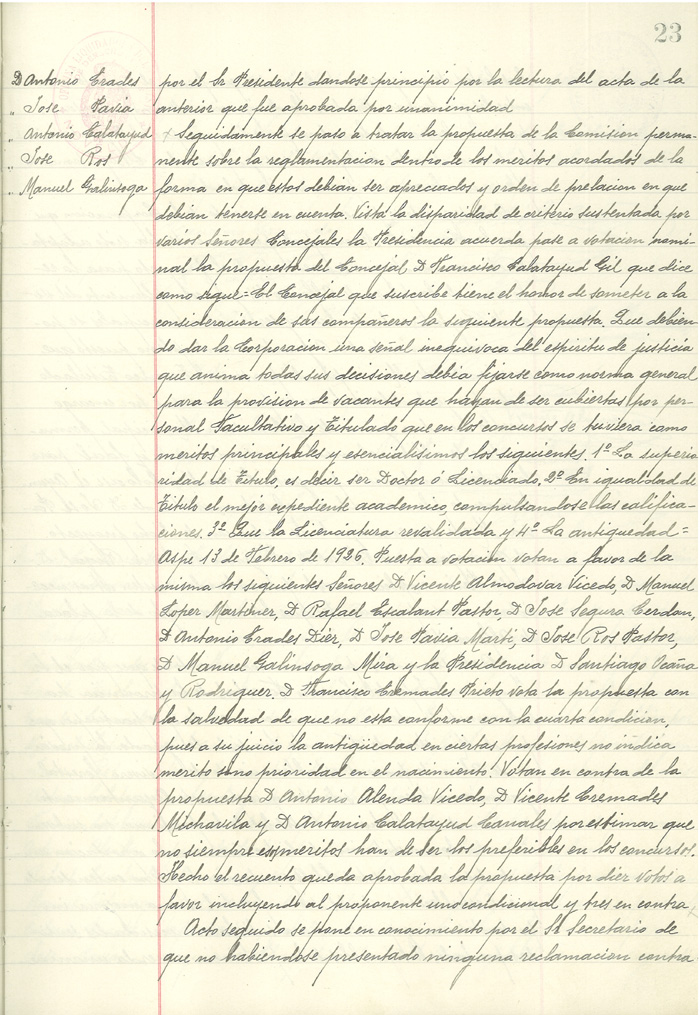 23
D Antonio Erades
" Jose Pavia
" Antonio Calatayud
" Jose Ros
" Manuel Galinsoga
por el Sr Presidente dandose principio por la lectura del acta de la
anterior que fue aprobada por unanimidad
Seguidamente se paso a tratar la propuesta de la Comision perma-
nente sobre la reglamentacion dentro de los meritos acordados de la
forma en que estos debian ser apreciados y orden de prelacion en que
debian tenerse en cuenta. Vista la disparidad de criterio sustentada por
varios Señores Concejales la Presidencia acuerda pase a votacion nomi-
nal la propuesta del Concejal D Francisco Calatayud Gil que dice
como sigue = El Concejal que suscribe tiene el honor de someter a la
consideracion de sus compañeros la siguiente propuesta. Que debien-
do dar la Corporacion una señal inequivoca del espiritu de justicia
que anima todas sus decisiones debia fijarse como norma general
para la provision de vacantes que hayan de ser cubiertas por per-
sonal Facultativo y Titulado que en los concursos se tuviera como
meritos principales y esencialisimos los siguientes. 1º La superio
ridad de Titulo, es decir ser Doctor ó Licenciado. 2º En igualdad de
Titulo el mejor expediente academico, compulsandose las califica-
ciones. 3º Que la Licenciatura revalidada y 4º La antiguedad =
Aspe 13 de Febrero de 1926. Puesta a votacion votan a favor de la
misma los siguientes Señores D. Vicente Almodovar Vicedo, D Manuel
Lopez Martinez, D Rafael Escalant Pastor, D Jose Segura Cerdan,
D Antonio Erades Diez, D Jose Pavia Martí, D José Ros Pastor,
D Manuel Galinsoga Mira y la Presidencia D Santiago Ocaña
y Rodriguez. D Francisco Cremades Prieto vota la propuesta con
la salvedad de que no esta conforme con la cuarta condicion,
pues a su juicio la antigüedad en ciertas profesiones no indica
merito sino prioridad en el nacimiento. Votan en contra de la
propuesta D Antonio Alenda Vicedo, D Vicente Cremades
Michavila y D Antonio Calatayud Canales por estimar que
no siempre esos meritos han de ser los preferibles en los concursos.
Hecho el recuento queda aprobada la propuesta por diez votos a
favor incluyendo al proponente uno condicional y tres en contra
Acto seguido se pone en conocimiento por el Sr Secretario de
que no habiendose presentado ninguna reclamacion contra